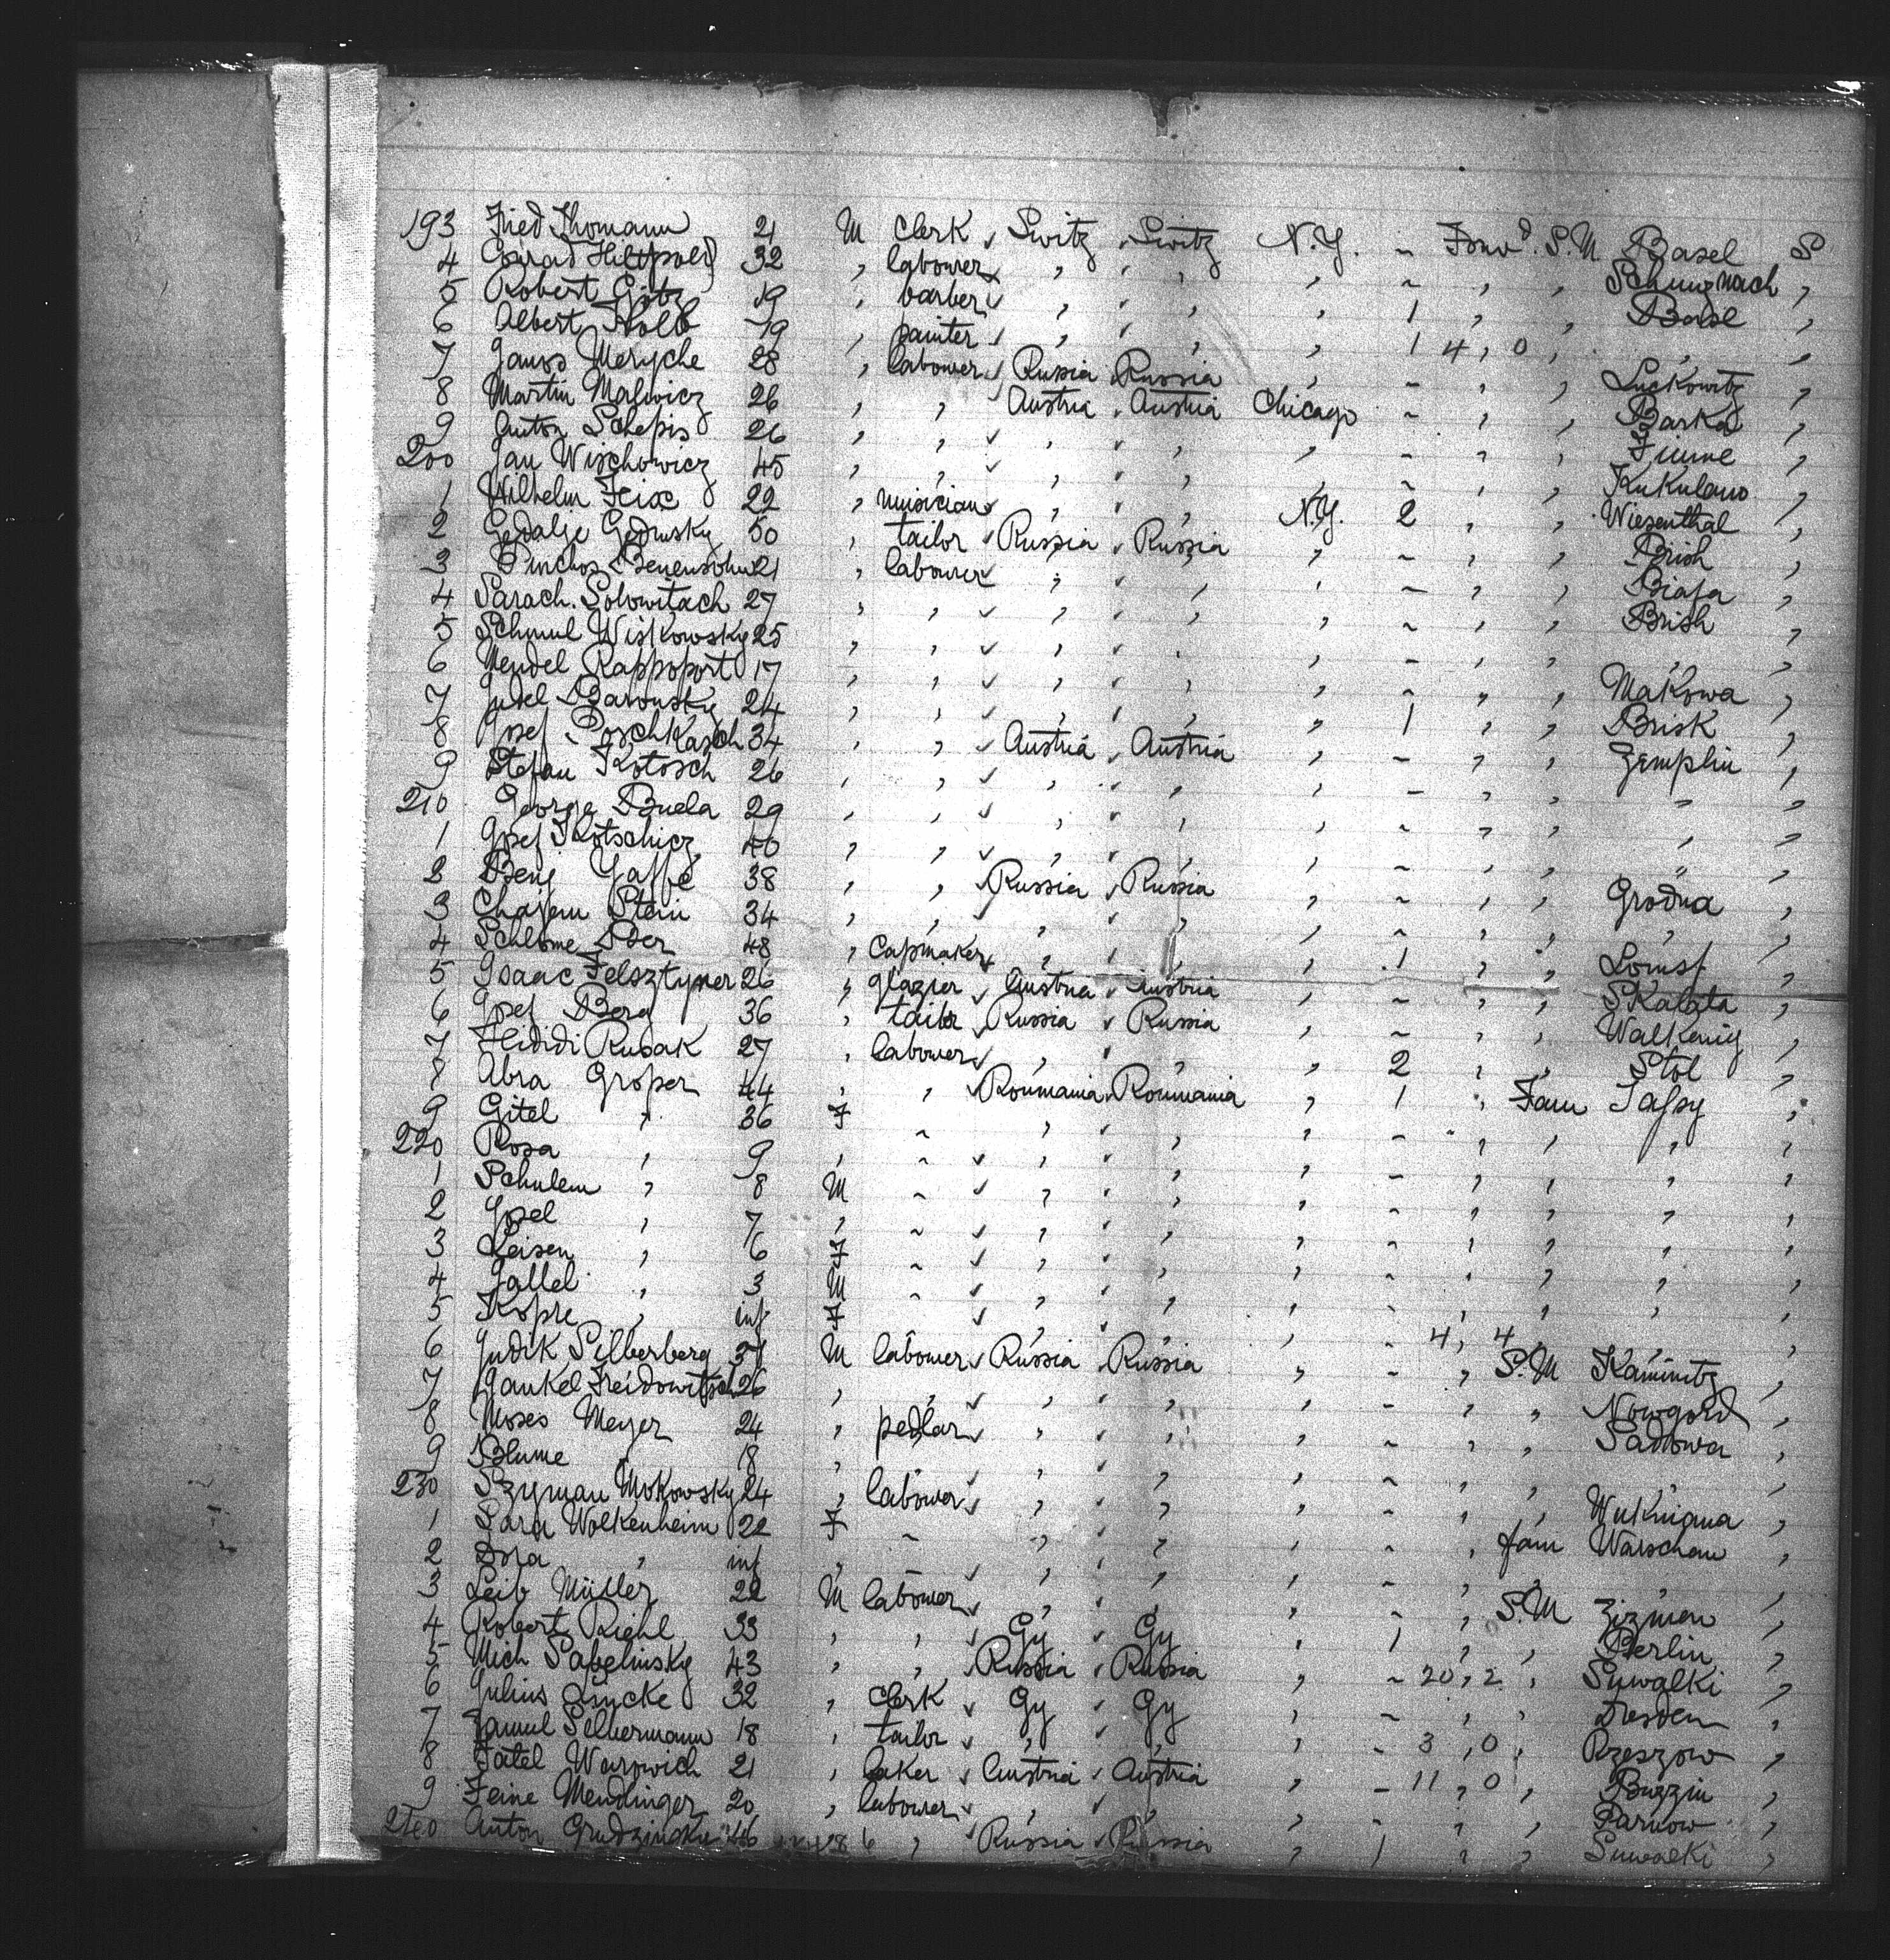 193 Fried Thomann 21 M clerk Switz Switz N.Y. - Forwd. S.M Basel S
4 Conrad Hiltpold 32 , labourer , , , - , , Schuznach ,
5 Robert Götz 19 , barber , , , 1 , , Basel ,
6 Albert Kolb 19 , painter , , , 1 4, 0 , , ,
7 Janos Meryche 28 , labourer Russia Russia , - , , Luckowitz ,
8 Martin Malwicz 26 , , Austria Austria Chicago - , , Barka ,
9 Anton Schepis 26 , , , , , - , , Fiume ,
200 Jan Wischowicz 45 , , , , , - , , Kukulano ,
1 Wilhelm Feix 22 , musician , , N.Y. 2 , , Wiesenthal ,
2 Gedalje Gedrusky 50 , tailor Russia Russia , - , , Brish ,
3 Pinchos Benensohn 21 , labourer , , , - , , Biafa ,
4 Sarach. Solowitach 27 , , , , , - , , Brish ,
5 Schmul Wiskowsky 25 , , , , , - , , , ,
6 Mendel Rappoport 17 , , , , , - , , Makowa ,
7 Judel Baronsky 24 , , , , , 1 , , Brisk ,
8 Josef Poschkasch 34 , , Austria Austria , - , , Zemplin ,
9 Stefan Kotosch 26 , , , , , - , , " ,
210 George Buela 29 , , , , , - , , , ,
1 Josef Kotschicz 40 , , , , , - , , " ,
2 Benj Jaffe 38 , , Russia Russia , - , , Grodna ,
3 Chajem Stein 34 , , , , , - , , , ,
4 Schlome 48 , Capmaker , , , 1 , , Lomsf ,
5 Isaac Felsztyner 26 , glazier Austria Austria , - , , Skalata ,
6 Josef Berg 36 , tailor Russia Russia , - , , Walkenig ,
7 Hididi Rusak 27 , labourer , , , 2 , , Stol ,
8 Abra Groper 44 , , Roumania Roumania , 1 , Fam Jassy ,
9 Gitel , 36 F - , , , - , , , ,
220 Rosa , 9 , - , , , - , , , ,
1 Schulem , 8 M - , , , - , , , ,
2 Josel , 7 , - , , , - , , , ,
3 Leisen , 6 F - , , , - , , , ,
4 Gallel , 3 M - , , , - , , , ,
5 Kopre , inf F , , , - 4, 4 , , ,
6 Judik Silberberg 37 M labourer Russia Russia , - , S.M Kaminitz ,
7 Jankel Freidowitsch 26 , , , , , - , , Nowgord ,
8 Moses Meyer 24 , pedlar , , , - , , Sadowa ,
9 Blume 18 , , , , , - , , , ,
230 Szyman Mokowsky 24 , labourer , , , - , , Wukniana ,
1 Sara Wolkenheim 22 F - , , , - , fam Warschau ,
2 Dora , inf , - , , , - , , , ,
3 Leib Müller 22 M labourer , , , - , S.M Zizmen ,
4 Robert Riehl 33 , , Gy Gy , 1 , , Berlin ,
5 Mich Sabelinsky 43 , , Russia Russia , - 20, 2 , Suwalki ,
6 Julius Lincke 32 , clerk Gy Gy , - , , Dresden ,
7 Samul Silbermann 18 , tailor , , , - 3, 0 , Rzeszow ,
8 Fatel Warowich 21 , baker Austria Austria , - 11, 0 , Buzzin ,
9 Feine Mendinger 20 , labourer , , , - , , Parnow ,
240 Anton Grudzinsky 46 , Russia Russia , 1 , , Suwalki ,